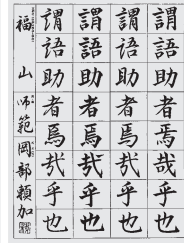 謂語助者焉哉乎也
謂語助者焉哉乎也
謂語助者焉哉乎也
謂語助者焉哉乎也
福山 師範 岡部頼加